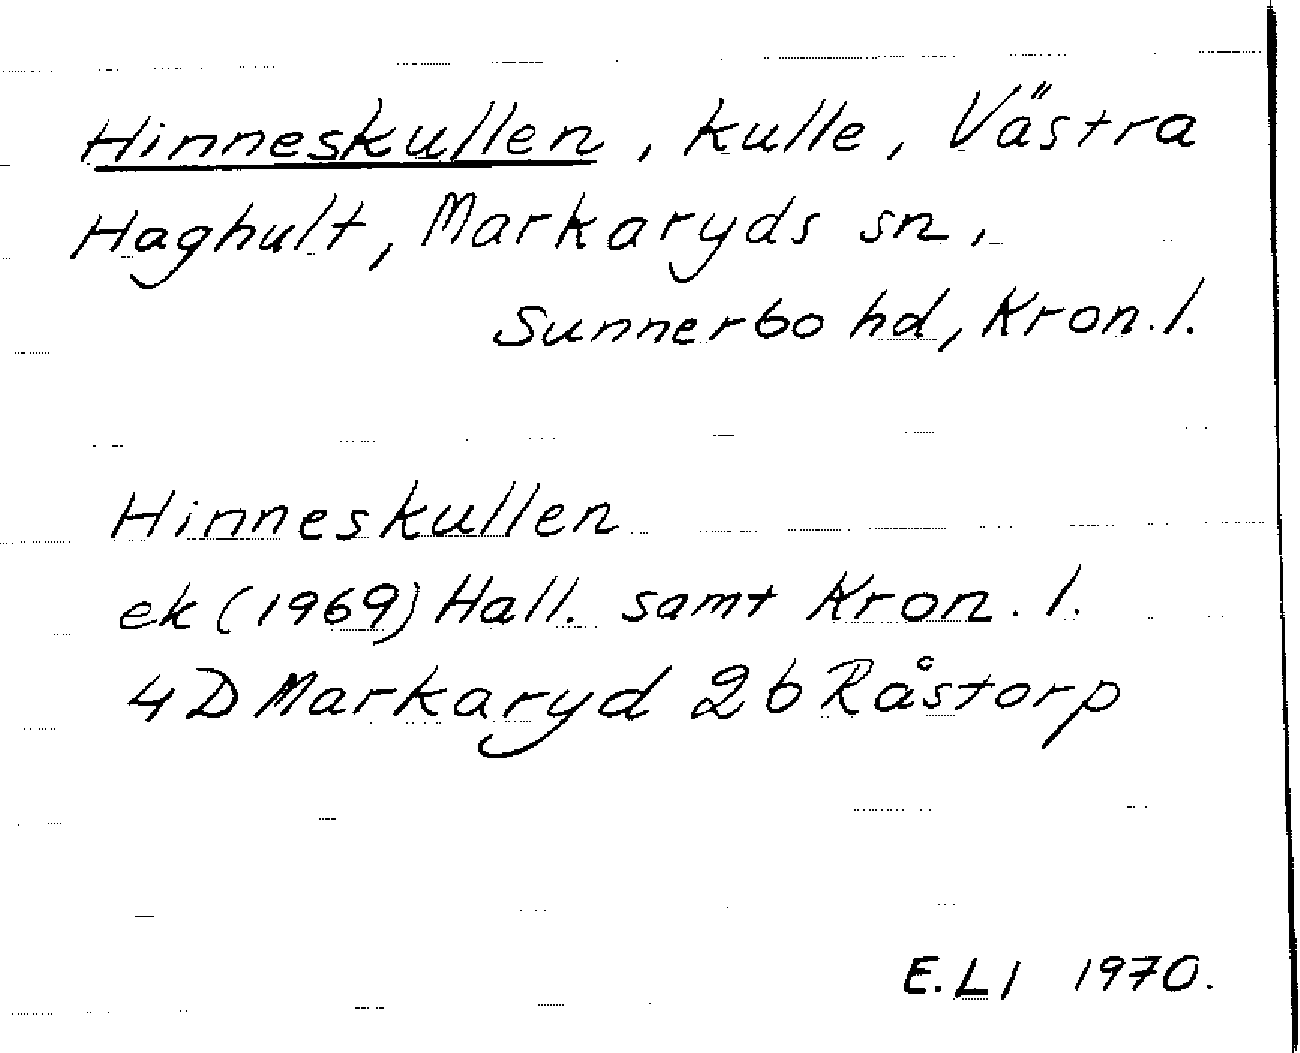 Hinneskullen, kulle, Västra
Haghult, Markaryds sn,
Sunnerbo hd, Kron. l.
Hinneskullen
ek (1969) Hall. samt Kron. l.
4D Markaryd 2b Råstorp
E. Ll 1970.